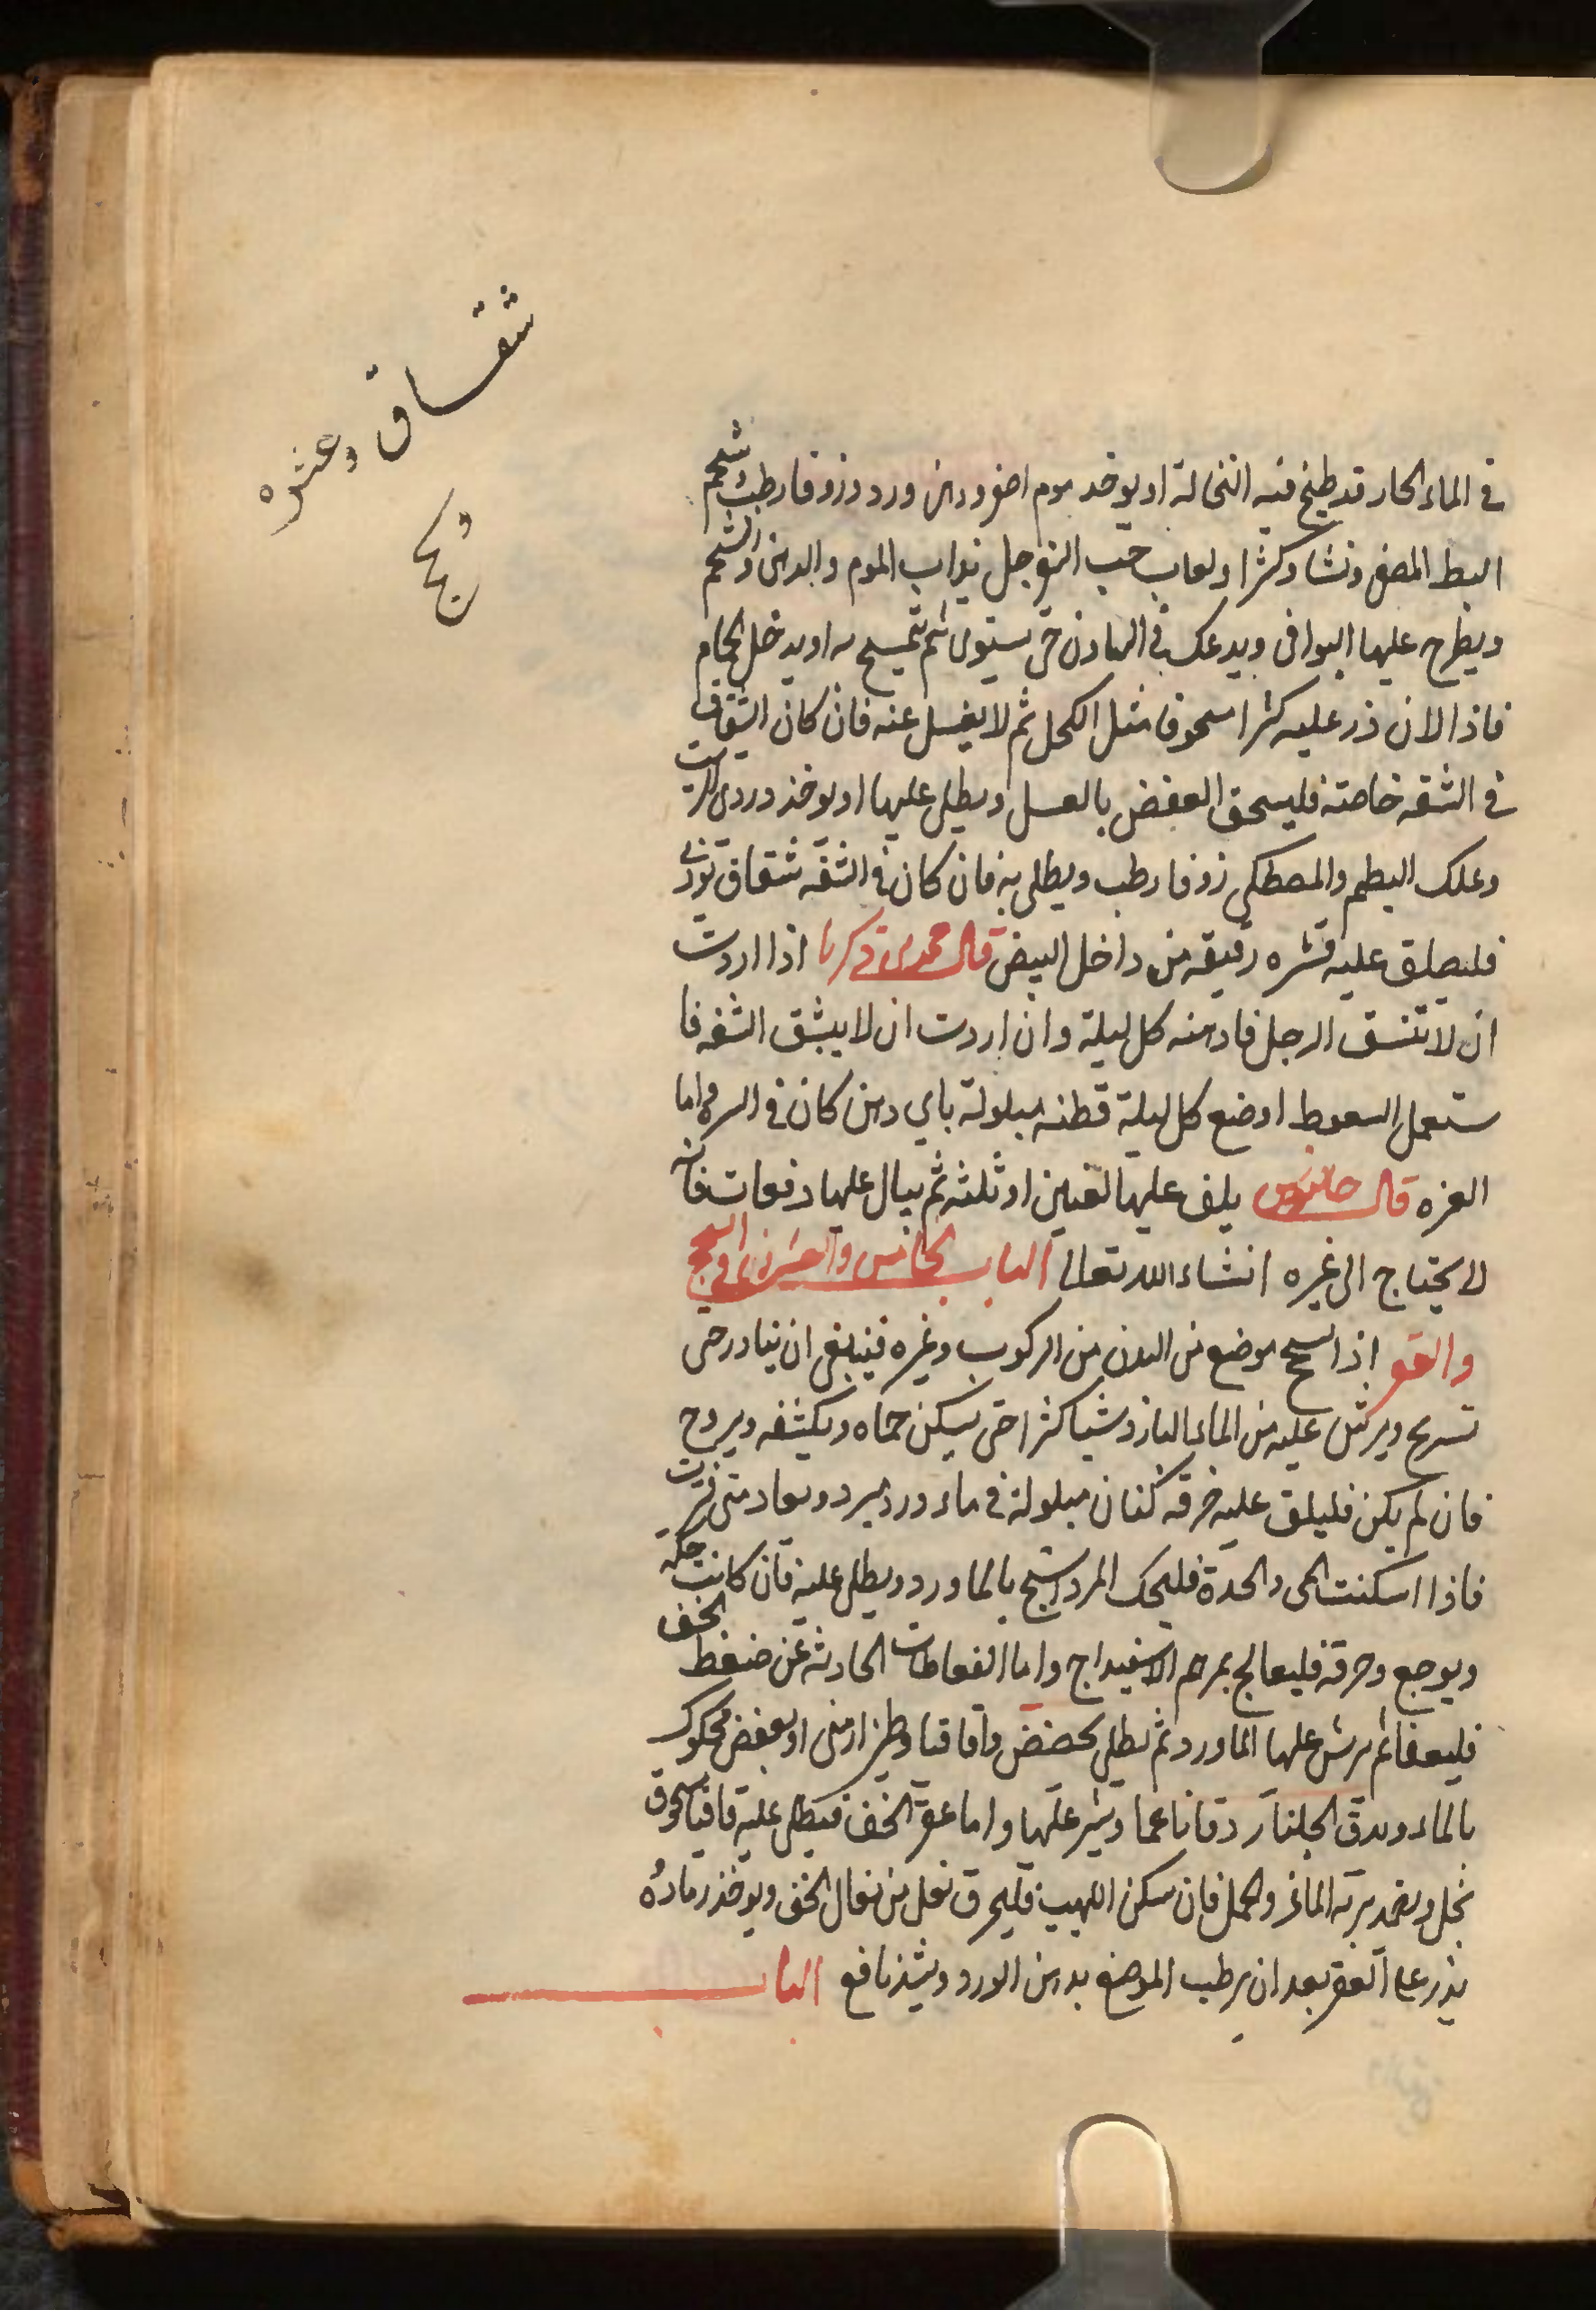 شقاق وعثره
و سحج
في الماء الحار قد طبخ فيه النخالة او يوخذ موم اصفر ودهن ورد وزوفا رطب وشحم
البط المصفى ونشا وكثرا ولعاب حب السفرجل يذاب الموم والدهن والشحم
ويطرح عليها البواقى ويدعك في الهاون حتى يستوى ثم تمسح به او يدخل الحمام
فاذا لان ذر عليه كثرا مسحوقا مثل الكحل ثم لا يغسل عنه فان كان الشقاق
في الشفه خاصته فليسحق العفص بالعسل ويطلى عليها او يوخذ دردى الزيت
وعلك البطم والمصطكى زوفا رطب ويطلى به فان كان في الشفه شقاق توذى
فليصلق عليه قشره رقيقه من داخل البيض قال محمد بن زكريا اذا اردت
ان لا تنشق الرجل فادهنه كل ليلة وان اردت ان لا يشق الشفه فا
ستعمل السعوط او ضع كل ليلة قطنه مبلولة باي دهن كان في السره واما
العثره قال جالينوس يلف عليها لفتين او ثلثه ثم يبال عليها دفعات فانه
لا يحتاج الى غيره انشاء الله تعالى الباب الخامس والعشرون في السحج
والعقر اذا انسحج موضع من البدن من الركوب وغيره فينبغى ان يبادر حتى
تسريح ويرش عليه من الماء البارد شيا كثرا حتى يسكن حماه ويكشفه ويروح
فان لم يكن فليلق عليه خرقه كتان مبلولة في ماء ورد مبرد ويعاد متى فترت
فاذا اسكنت الحمى والحدة فليحك المرداسنج بالماورد ويطلى عليه فان كانت حكه
ويوجع وحرقه فليعالج بمرهم الاسفيداج واما النفاطات الحادثه عن ضغط الخف
فليفقا ثم يرش عليها الماورد ثم يطلى بحضض واقاقيا وطين ارمنى او بعفص محكوك
بالماء ويدق الجلنار دقا ناعما وينثر عليها واما عقر الخف فيطلى عليه قاقيا مسحوق
بخل ويضمد بريه الماعز والحمل فان سكن اللهيب فليحرق نعل من نعال الخف ويوخذ رماده
يذر على العقر بعد ان يرطب الموضع بدهن الورد ويشد نافع الباب